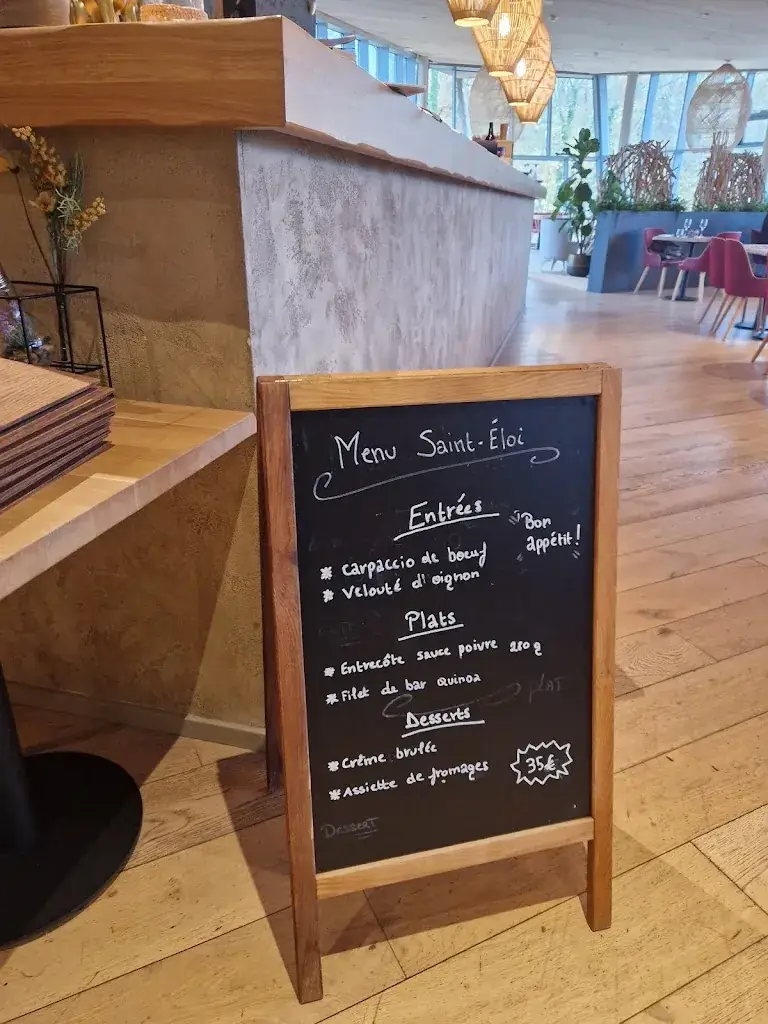 Menu Saint-Éloi
Entrées
Bon
appétit!
* carpaccio de bœuf
* Velouté d'oignon
Plats
* Entrecôte sauce poivre 280 g
* Filet de bar Quinoa
PLAT
Desserts
* Crème brulée
* Assiette de fromages
35€
Dessert